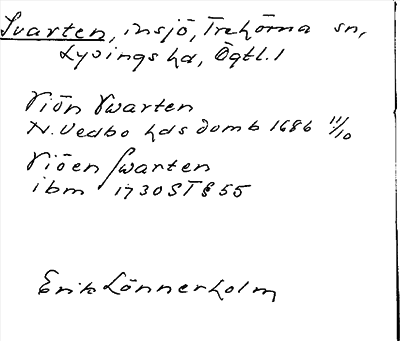 Svarten, insjö, Trehörna sn,
Lysings hd, Ögtl.1
Siön Swarten
N. Vedbo hds domb 1686 11/10
Siöen Swarten
ibm 1730 ST § 55
Erik Lönnerholm